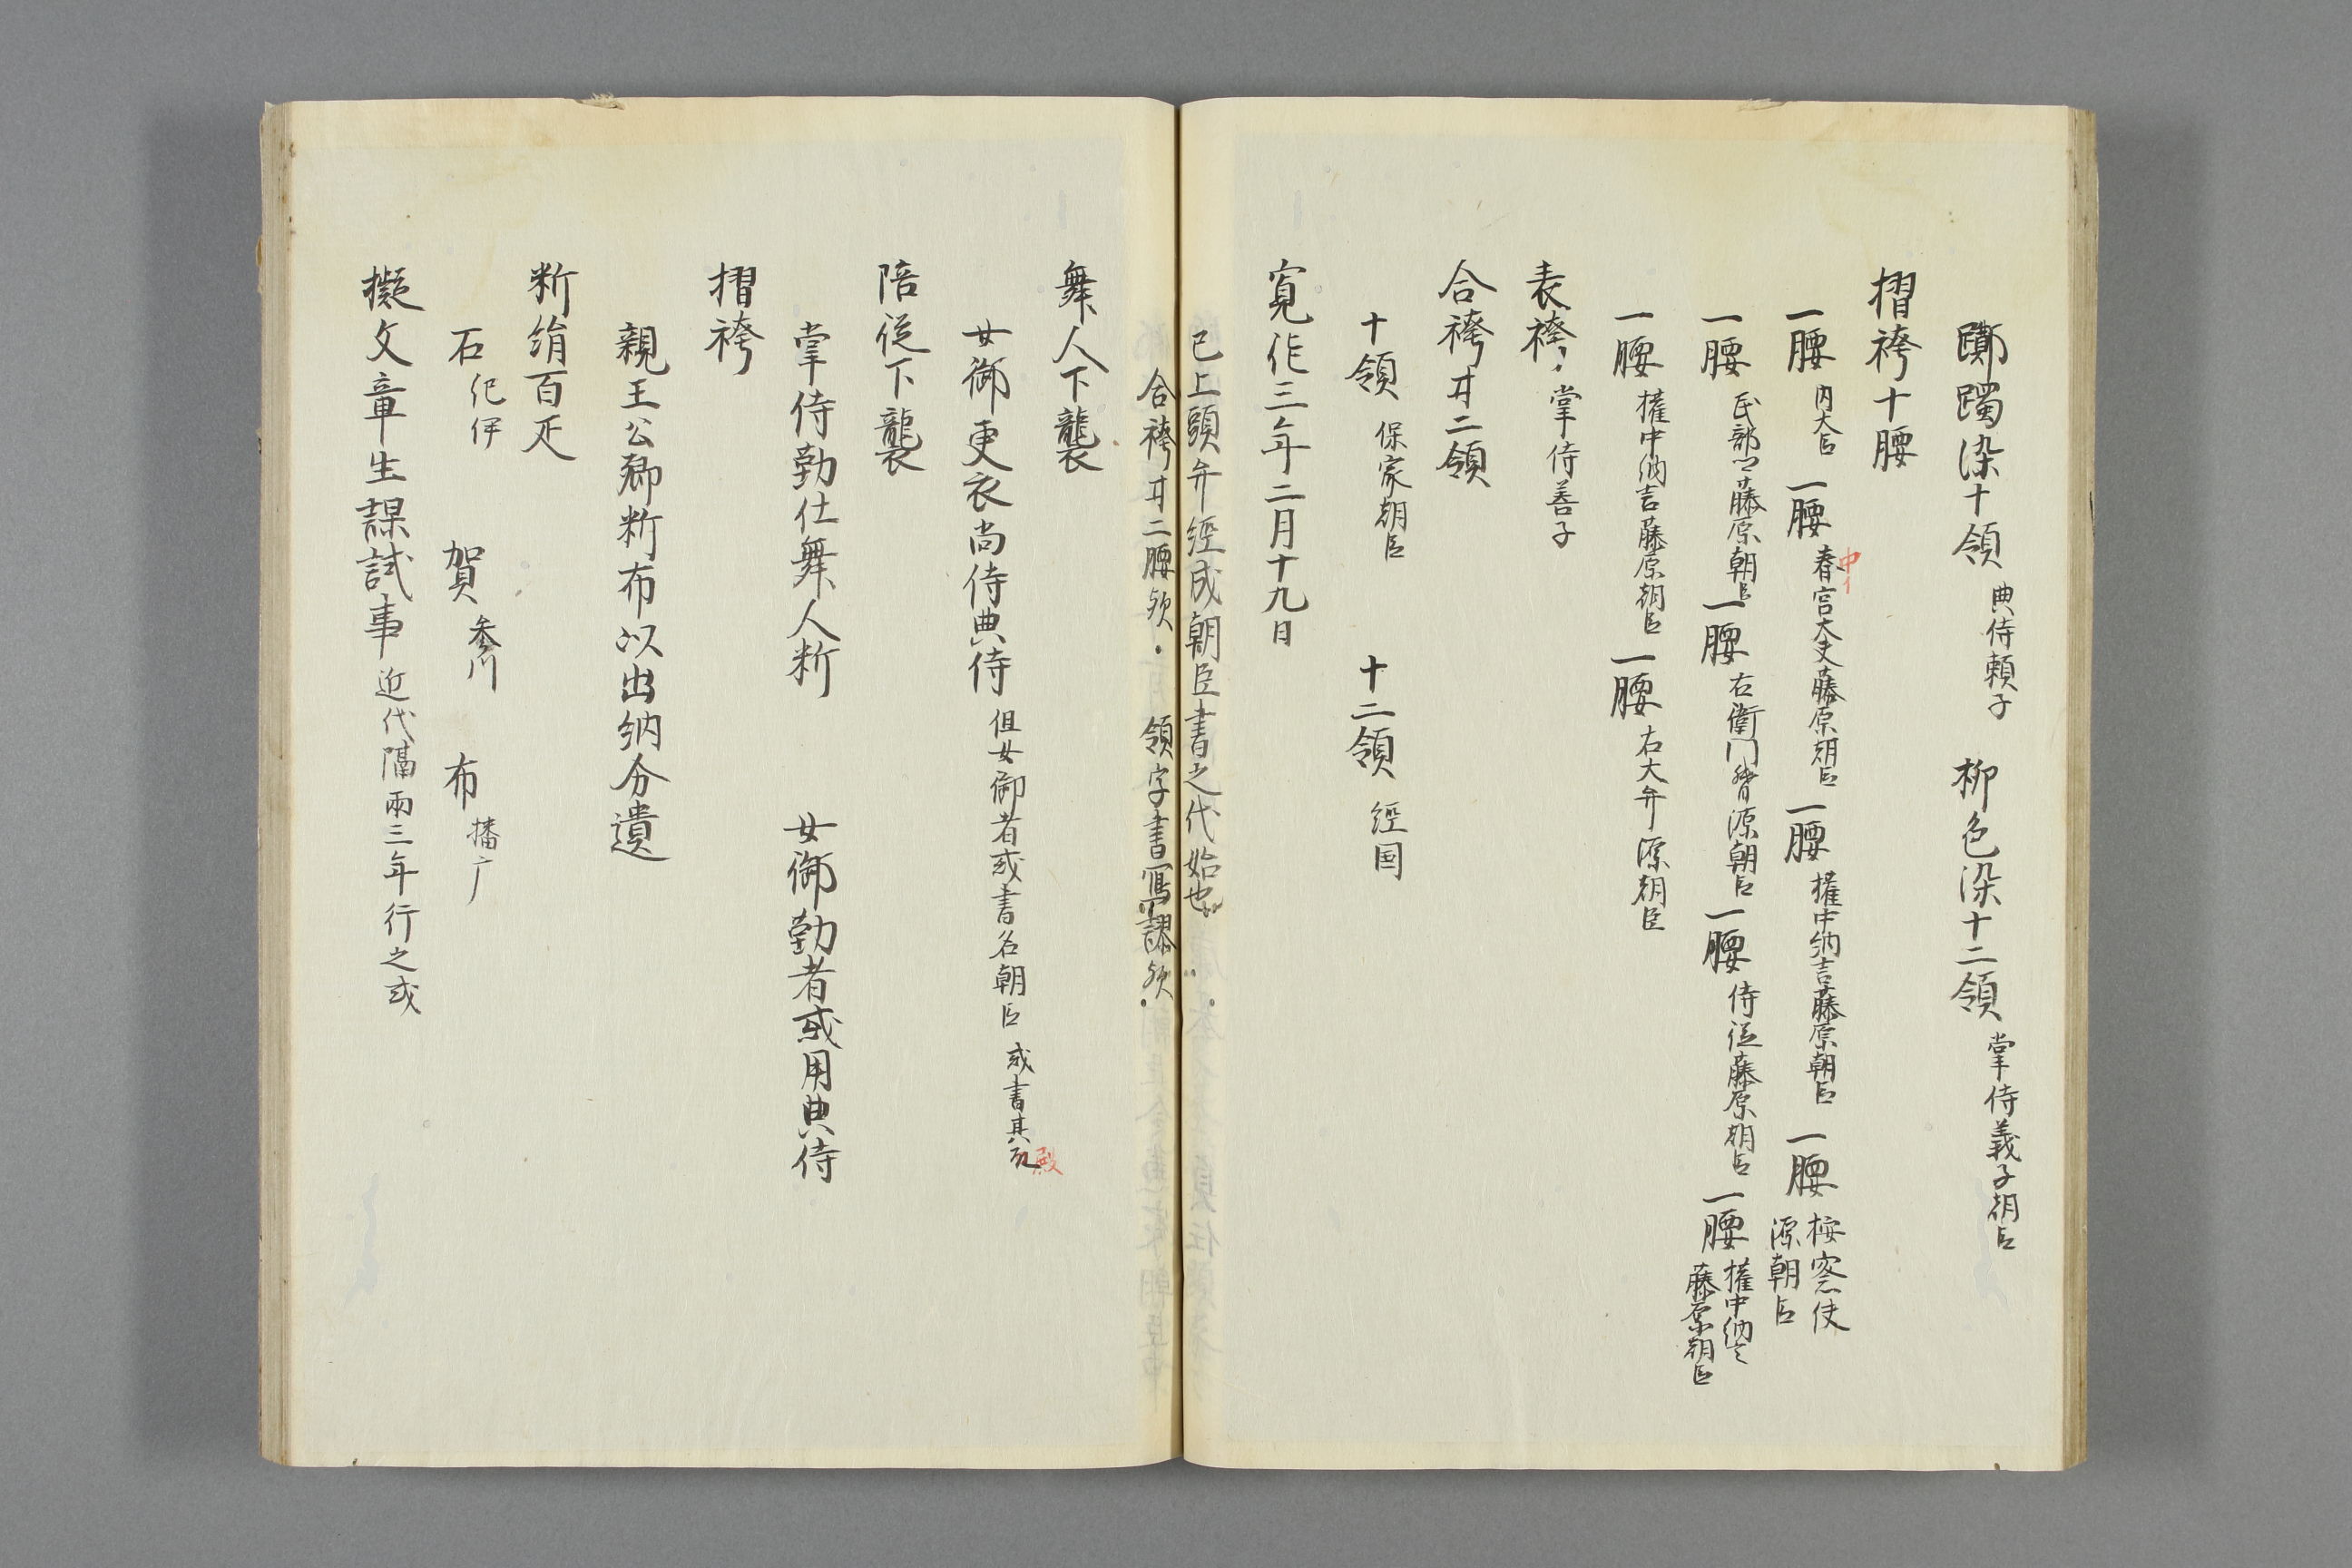 躑躅染十領 典侍頼子 柳色染十二領 掌侍義子朝臣
摺袴十腰
一腰 内大臣 一腰 春宮大夫藤原朝臣 一腰 權中納言藤原朝臣 一腰 桉察使 源朝臣
中イ
一腰 民部卿藤原朝臣 一腰 右衛門督源朝臣 一腰 侍從藤原朝臣 一腰 權中納言 藤原朝臣
一腰 權中納言藤原朝臣 一腰 右大弁源朝臣
表袴 掌侍善子
合袴廿二領
十領 保家朝臣 十二領 經国
寛治三年二月十九日
已上頭弁經成朝臣書之代始也
合袴廿二腰欤 領字書寫謬欤
舞人下襲
女御更衣尚侍典侍 但女御者或書名朝臣 或書其
殿
陪従下襲
掌侍勤仕舞人䉼 女御勤者或用典侍
摺袴
親王公卿䉼布以出納分遺
䉼絹百疋
石 紀伊 賀 参川 布 播广
擬文章生課試事 近代隔兩三年行之或